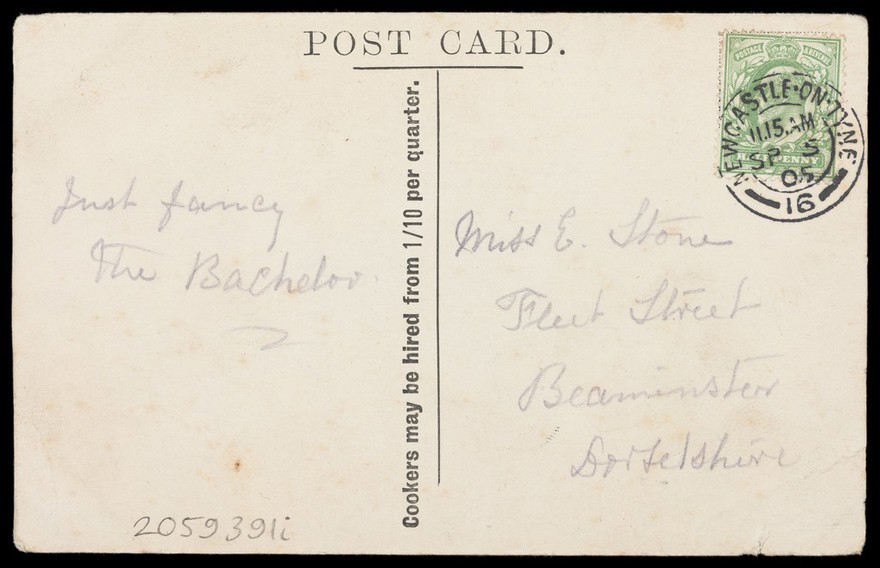 POST CARD.
POSTAGE REVENUE
HALF PENNY
NEWCASTLE·ON·TYNE
11.15.AM
SP 5
05
16
Just fancy
The Bachelor
Cookers may be hired from 1/10 per quarter.
Miss E. Stone
Fleet Street
Beaminster
Dorsetshire
2059391i